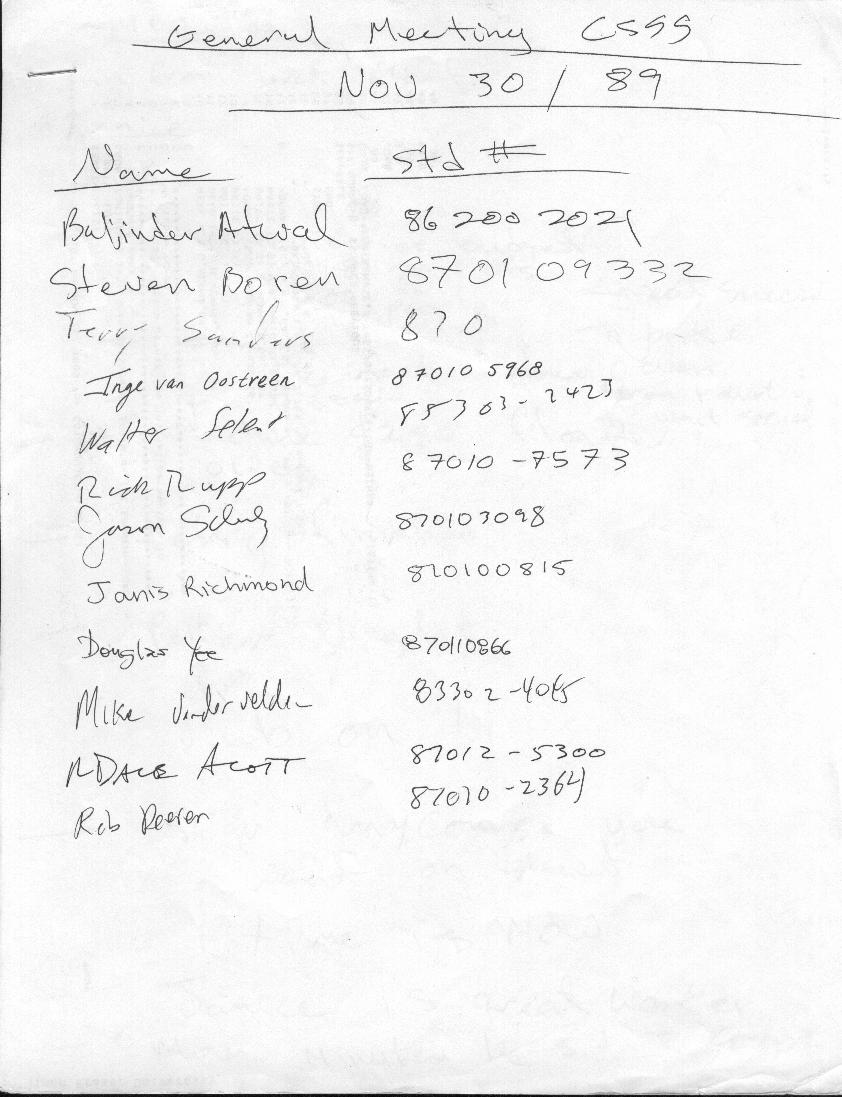 General Meeting CSSS
NOV 30 / 89
Name Std #
Baljinder Atwal 86 200 2021
Steven Boren 8701 09332
Terry Sanders 870
Inge van Oostveen 87010 5968
Walter Selent 85303-2423
Rick Rupp 87010-7573
Jason Schulz 870103098
Janis Richmond 870100815
Douglas Yee 870110866
Mike Vandervelden 83302-4045
DALE ACOTT 87012-5300
Rob 87010-2364